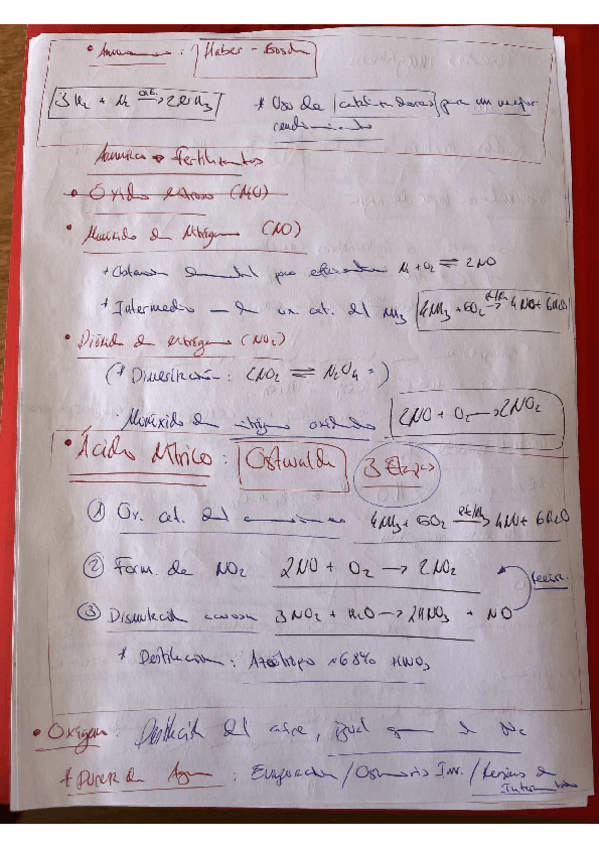 • Amoniaco : Haber - Bosch
3H₂ + N₂ cat.→ 2NH₃ * Uso de catalizadores para un mejor
rendimiento
Amoniaco → Fertilizantes
• Óxido nitroso (N₂O)
• Monóxido de Nitrógeno (NO)
* Obtención elemental poco eficiente N₂ + O₂ ⇌ 2NO
* Intermedio — de ox. cat. del NH₃ 4NH₃ + 5O₂ Pt/Rh→ 4NO + 6H₂O
• Dióxido de nitrógeno (NO₂)
(* Dimerización : 2NO₂ ⇌ N₂O₄ )
Monóxido de nitrógeno oxidado 2NO + O₂ → 2NO₂
• Ácido Nítrico : Ostwald 3 Etapas
① Ox. cat. del amoniaco 4NH₃ + 5O₂ Pt/Rh→ 4NO + 6H₂O
② Form. de NO₂ 2NO + O₂ → 2NO₂
③ Dismutación acuosa 3NO₂ + H₂O → 2HNO₃ + NO
* Destilación : Azeótropo ~68% HNO₃
• Oxígeno : Destilación del aire, igual que el N₂
* Pureza de Agua : Evaporación / Osmosis Inv. / Resinas de
Intercambio